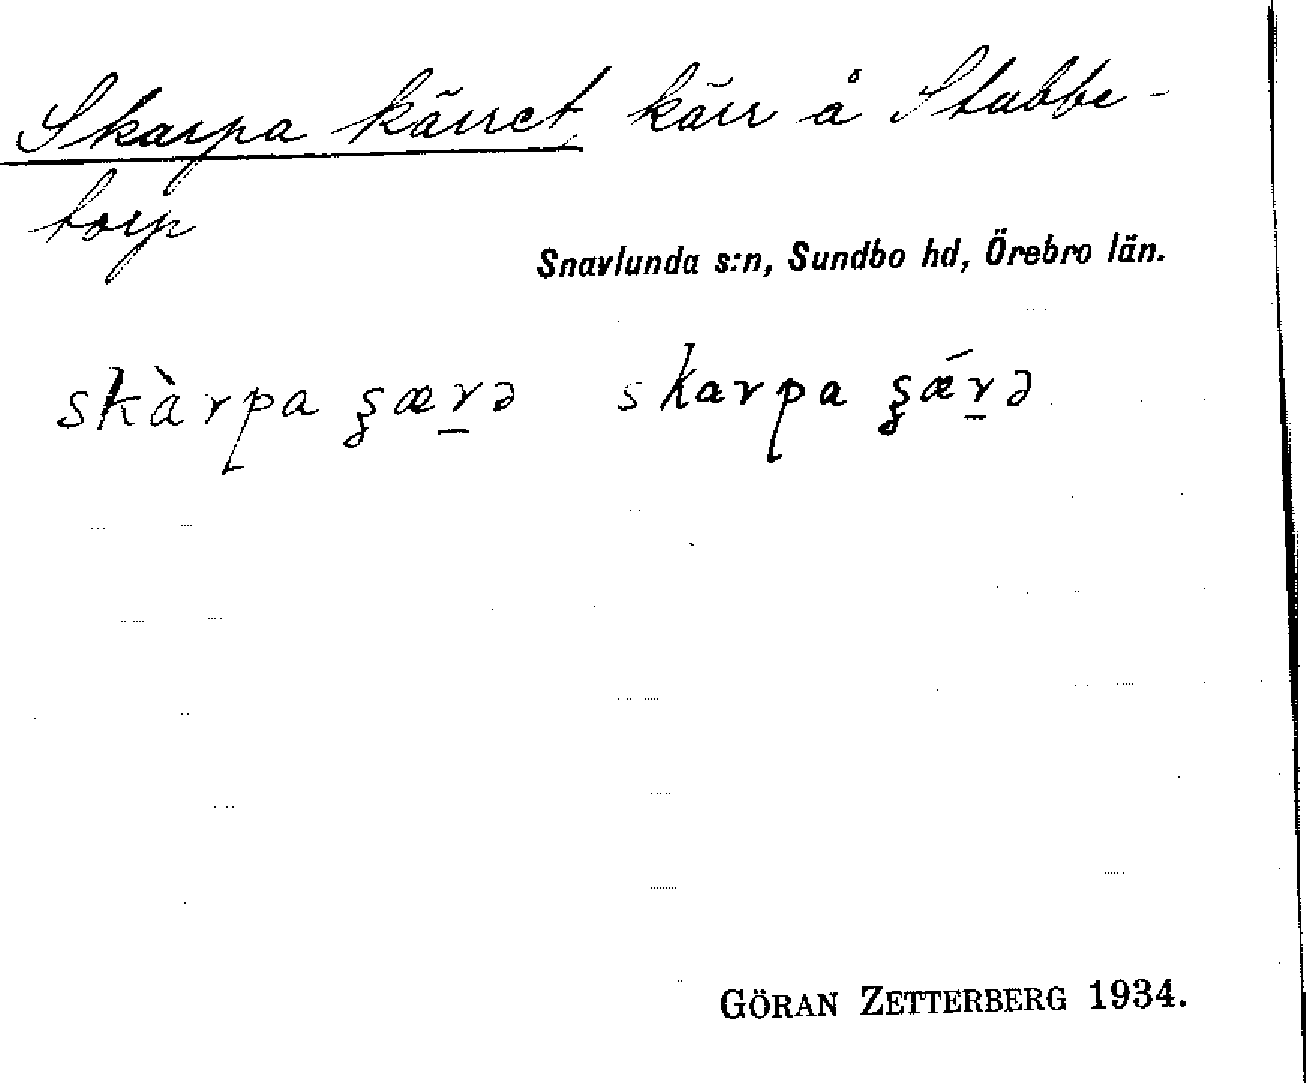 Skarpa kärret, kärr å Stabbe-
torp
Snavlunda s:n, Sundbo hd, Örebro län.
skàrpa ʂæṟə skarpa ʂǽṟə
GÖRAN ZETTERBERG 1934.